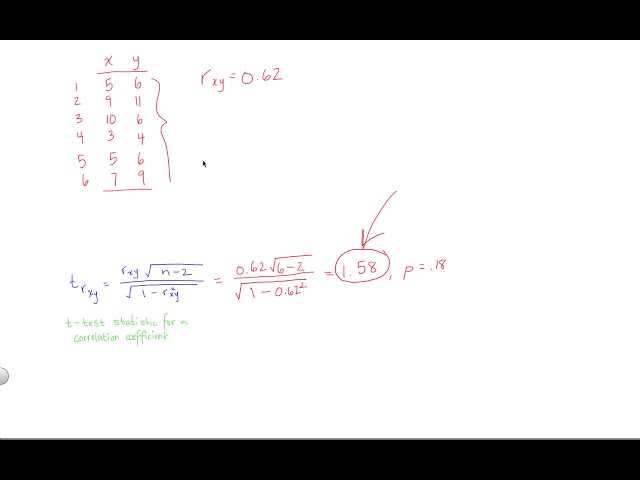 x y
1 5 6
2 9 11
3 10 6
4 3 4
5 5 6
6 7 9
r_xy = 0.62
t_r_xy = r_xy √(n-2) / √(1 - r_xy²) = 0.62 √(6-2) / √(1 - 0.62²) = 1.58, p = .18
t-test statistic for a
correlation coefficient